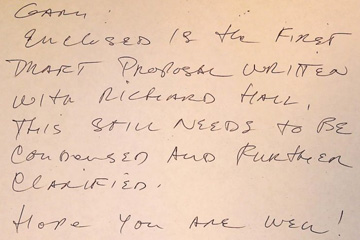 Gary:
Enclosed is the first
draft proposal written
with Richard Hall.
This still needs to be
condensed and further
clarified.
Hope you are well!